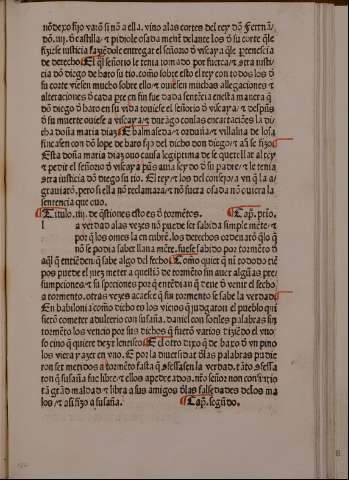 nõ dexo fijo varõ si nõ a ella. vino alas cortes del rey dõ Ferrnã/
dõ .iiij. de castilla. ⁊ pidiole osada mente delante los d̃ su corte q̃le
fiziesse iusticia faziẽdole entregar el señorio d̃ viscaya q̃le ꝑtenescia
de derecho El q̃l señorio le tenia tomado por fuerca/ ⁊ ⁊tra iusti/
cia dõ diego de baro su tio. como sobre esto el rey con todos los d̃
su corte viessen mucho sobre ello/ ⁊ ouiessen muchas allegaciones ⁊
alteraciones d̃ cada ꝑte en fin fue dada sentẽcia en esta manera q̃
dõ diego d̃ baro en su vida touiesse el señorio d̃ viscaya/ ⁊ despues
d̃ su muerte ouiesse a viscaya/ ⁊ durãgo con las encartaciões la di
cha doña maria diaz E balmaseda/ ⁊ orduña/ ⁊ villaina de losa
fincassen con dõ lope de baro fijo del dicho don diego/ ⁊ asi se fizo
Esta doña maria diaz ouo causa legitima de se querellar al rey
⁊ pedir el señorio d̃ viscaya pues auia seydo d̃ su padre/ ⁊ le tenia
⁊tra iusticia dõ diego su tio. El rey ⁊ los del consejo a vn q̃ la a/
grauiarõ. pero si ella nõ reclamara/ ⁊ nõ fuera osada nõ ouiera la
sentencia que ouo.
Titulo .iiij. de q̃stiones esto es d̃ tormẽtos. Cap̃. prio.
l a verdad alas vezes nõ puede ser sabida simple mẽte/ ⁊
por q̃ los omes la encubrẽ. los derechos ordenarõ q̃lo q̃
nõ se podia saber llana mẽte. fuesse sabido por tormẽto d̃
aq̃l q̃ entiẽden q̃ sabe algo del fecho Como quier q̃ ni todo tiẽ
pos puede el juez meter a questiõ de tormẽto sin auer algũas pre/
sumpciones/ ⁊ sospeciones por q̃ entẽdan q̃ deue d̃ venir el fecho
a tormento. otras vezes acaesce q̃ sin tormento se sabe la verdad
En babilonia como dicho es los viejos q̃ judgaron el pueblo q̃si
sierõ cometer adulterio con susaña. daniel con sonles palabras sin
tormẽto los vencio por sus dichos q̃ fuerõ varios diziẽdo el vno
so cino q̃ quiere dezir lentisco El otro dixo q̃ de baxo d̃ vn pino
los viera yazer en vno. E por la diuersidat d̃las palabras pudie
ron ser metidos a tormẽto fasta q̃ ⁊fessassen la verdad. ⁊ãto ⁊fessa
ron q̃ susaña fue libre/ ⁊ ellos apedreados. nr̃o señor non consintio
tã grãd maldad/ ⁊ libra a sus amigos d̃las falsedades delos ma
los/ ⁊ asi fizo a susaña. Cap̃. segũdo.